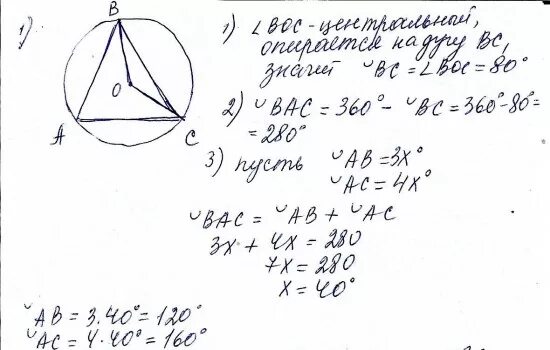 1)
B
O
A
C
1) ∠BOC - центральный,
опирается на дугу BC,
значит ◡BC = ∠BOC = 80°
2) ◡BAC = 360° - ◡BC = 360° - 80° =
= 280°
3) пусть ◡AB = 3x°
◡AC = 4x°
◡BAC = ◡AB + ◡AC
3x + 4x = 280
7x = 280
x = 40°
◡AB = 3·40° = 120°
◡AC = 4·40° = 160°